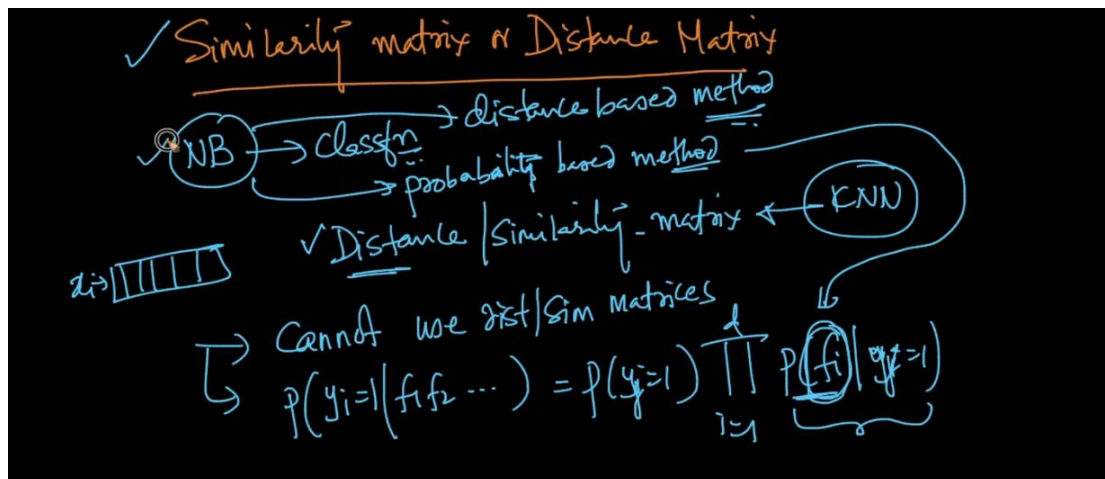 ✓ Similarity matrix or Distance Matrix
→ distance based method
✓ NB → Classfn
→ probability based method
✓ Distance / Similarity - matrix ← KNN
xi→
→ Cannot use dist/sim matrices
→ P(yi=1|f1f2 ...) = P(yi=1) ∏ i=1 d P(fi|yi=1)